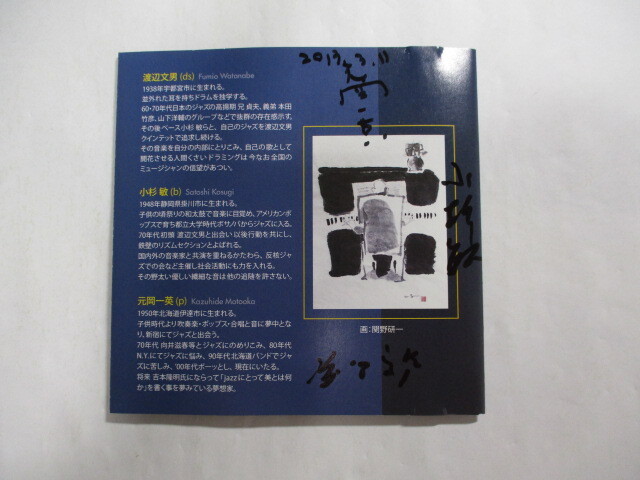 渡辺文男(ds) Fumio Watanabe
1938年宇都宮市に生まれる。
並外れた耳を持ちドラムを独学する。
60・70年代日本のジャズの高揚期 兄 貞夫、義弟 本田
竹彦、山下洋輔のグループなどで抜群の存在感示す。
その後 ベース小杉 敏らと、自己のジャズを渡辺文男
クインテットで追求し続ける。
その音楽を自分の内部にとりこみ、自己の歌として
開花させる人間くさい ドラミングは 今なお 全国の
ミュージシャンの信望があつい。
小杉 敏(b) Satoshi Kosugi
1948年静岡県掛川市に生まれる。
子供の頃祭りの和太鼓で音楽に目覚め、アメリカンポ
ップスで育ち都立大学時代ボサノバからジャズに入る。
70年代初頭 渡辺文男と出会い 以後行動を共にし、
鉄壁のリズムセクションとよばれる。
国内外の音楽家と共演を重ねるかたわら、反核ジャ
ズでの会など主催し社会活動にも力を入れる。
その野太い優しい繊細な音は 他の追随を許さない。
元岡一英(p) Kazuhide Motooka
1950年北海道伊達市に生まれる。
子供時代より吹奏楽・ポップス・合唱と音に夢中とな
り、新宿にてジャズと出会う。
70年代 向井滋春等とジャズにのめりこみ、80年代
N.Y.にてジャズに悩み、90年代北海道バンドでジャ
ズに苦しみ、'00年代ボーッとし、現在にいたる。
将来 吉本隆明氏にならって「jazzにとって美とは何
か」を書く事を夢みている夢想家。
2013.3.11
画：関野研一